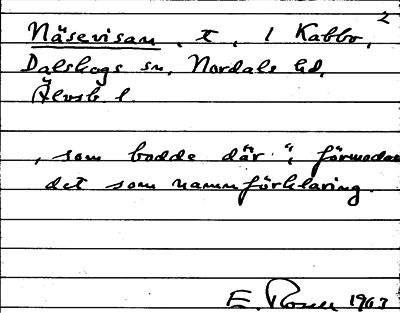 2
Näsevisan, t, i Kabbo,
Dalskogs sn, Nordals hd,
Älvsb. l.
, som bodde där", förmodar
det som namnförklaring.
E. 1963